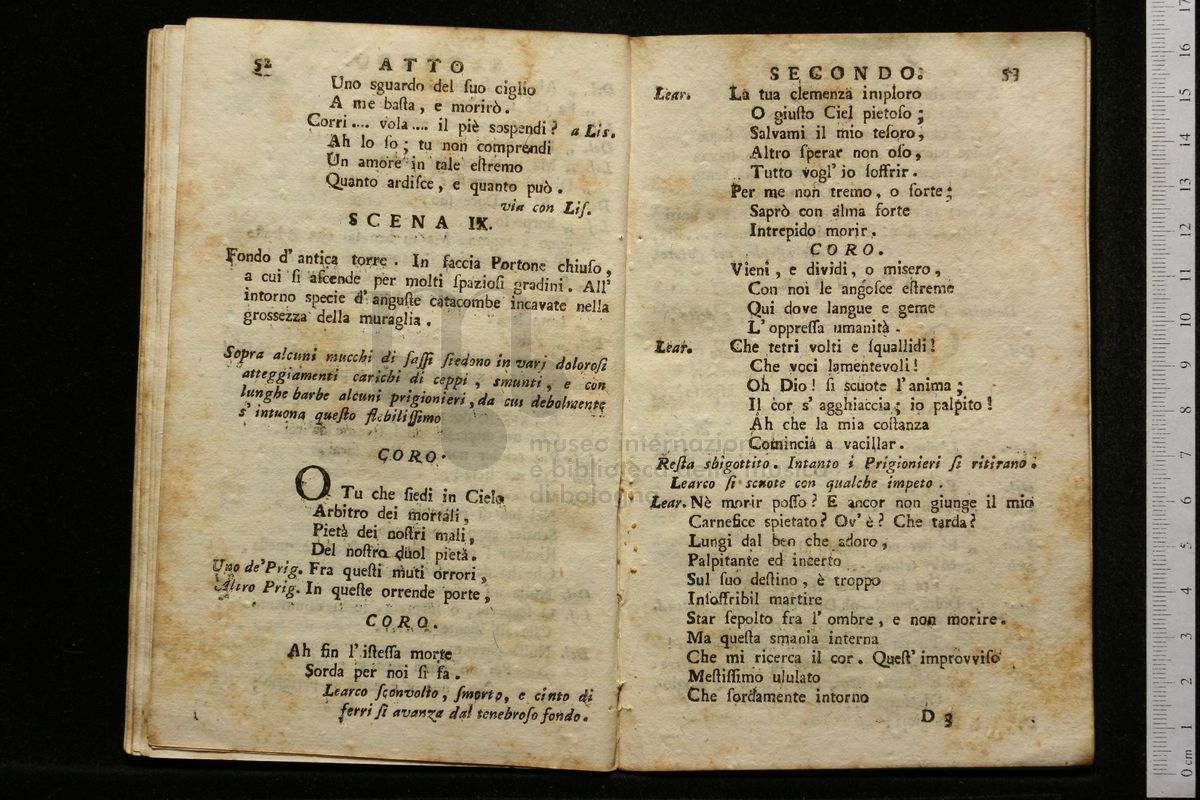 52 ATTO
Uno sguardo del ſuo ciglio
A me baſta, e morirò.
Corri.... vola.... il piè sospendi? a Lis.
Ah lo ſo; tu non comprendi
Un amore in tale eſtremo
Quanto ardiſce, e quanto può.
via con Liſ.
SCENA IX.
Fondo d' antica torre. In faccia Portone chiuſo,
a cui ſi aſcende per molti ſpazioſi gradini. All'
intorno specie d' anguſte catacombe incavate nella
grossezza della muraglia.
Sopra alcuni mucchi di ſaſſi ſiedono in varj doloroſi
atteggiamenti carichi di ceppi, smunti, e con
lunghe barbe alcuni prigionieri, da cui debolmente
s' intuona queſto flebiliſſimo
CORO.
O Tu che ſiedi in Cielo
Arbitro dei mortali,
Pietà dei noſtri mali,
Del noſtro duol pietà.
Uno de' Prig. Fra queſti muti orrori,
Altro Prig. In queſte orrende porte,
CORO.
Ah fin l' iſteſſa morte
Sorda per noi ſi fa.
Learco ſconvolto, ſmorto, e cinto di
ferri ſi avanza dal tenebroſo fondo.
SECONDO. 53
Lear. La tua clemenza imploro
O giuſto Ciel pietoſo;
Salvami il mio teſoro,
Altro ſperar non oſo,
Tutto vogl' io ſoffrir.
Per me non tremo, o ſorte;
Saprò con alma forte
Intrepido morir.
CORO.
Vieni, e dividi, o misero,
Con noi le angoſce eſtreme
Qui dove langue e geme
L' oppreſſa umanità.
Lear. Che tetri volti e ſquallidi!
Che voci lamentevoli!
Oh Dio! ſi scuote l' anima;
Il cor s' agghiaccia; io palpito!
Ah che la mia coſtanza
Comincia a vacillar.
Reſta sbigottito. Intanto i Prigionieri ſi ritirano.
Learco ſi scuote con qualche impeto.
Lear. Nè morir poſſo? E ancor non giunge il mio
Carnefice spietato? Ov' è? Che tarda?
Lungi dal ben che adoro,
Palpitante ed incerto
Sul ſuo deſtino, è troppo
Inſoffribil martire
Star ſepolto fra l' ombre, e non morire.
Ma queſta smania interna
Che mi ricerca il cor. Queſt' improvviſo
Meſtiſſimo ululato
Che ſordamente intorno
D 3
museo internazionale
e biblioteca della musica
di bologna
0 cm 1 2 3 4 5 6 7 8 9 10 11 12 13 14 15 16 17